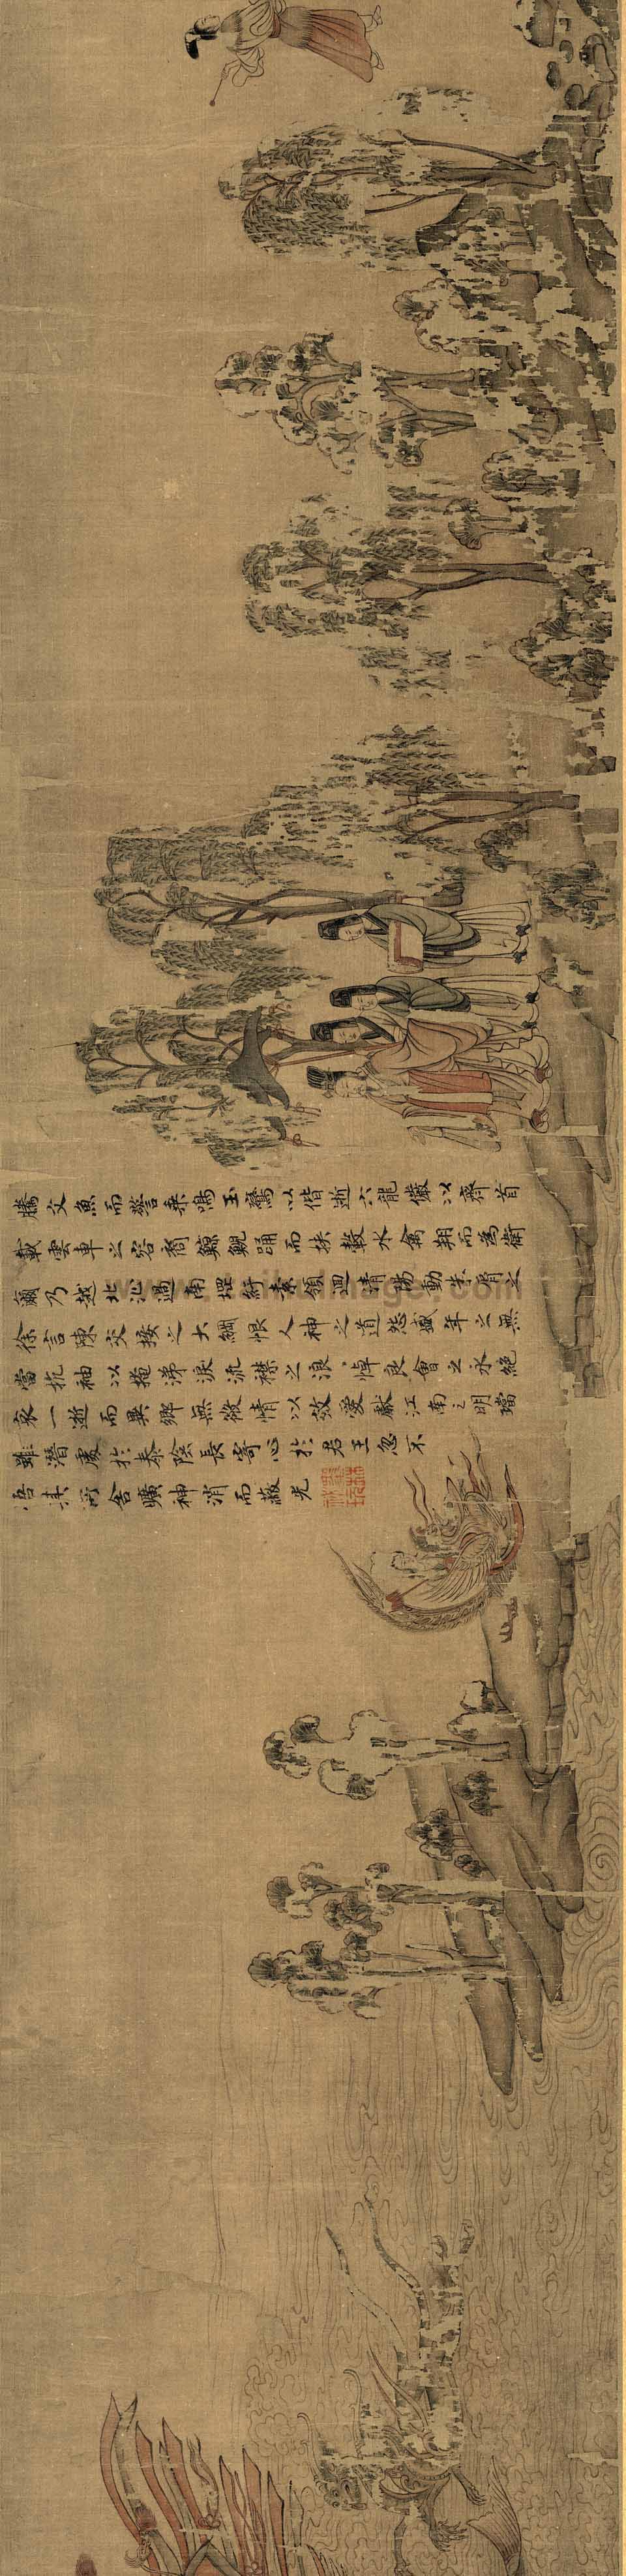 騰文魚而警乘鳴玉鸞以偕逝六龍儼以齊首
載雲車之容裔鯨鯢踊而扶轂水禽翔而為衛
爾乃越北沚過南堽紆素領迴清陽動朱脣之
徐言陳交接之大綱恨人神之道怨盛年之無
當抗袖以掩涕淚流襟之浪〻悼良會之永絕
哀一逝而異鄉無微情以效愛獻江南之明璫
雖潛處於泰陰長寄心於君王忽不
悟其所舍曠神消而蔽光